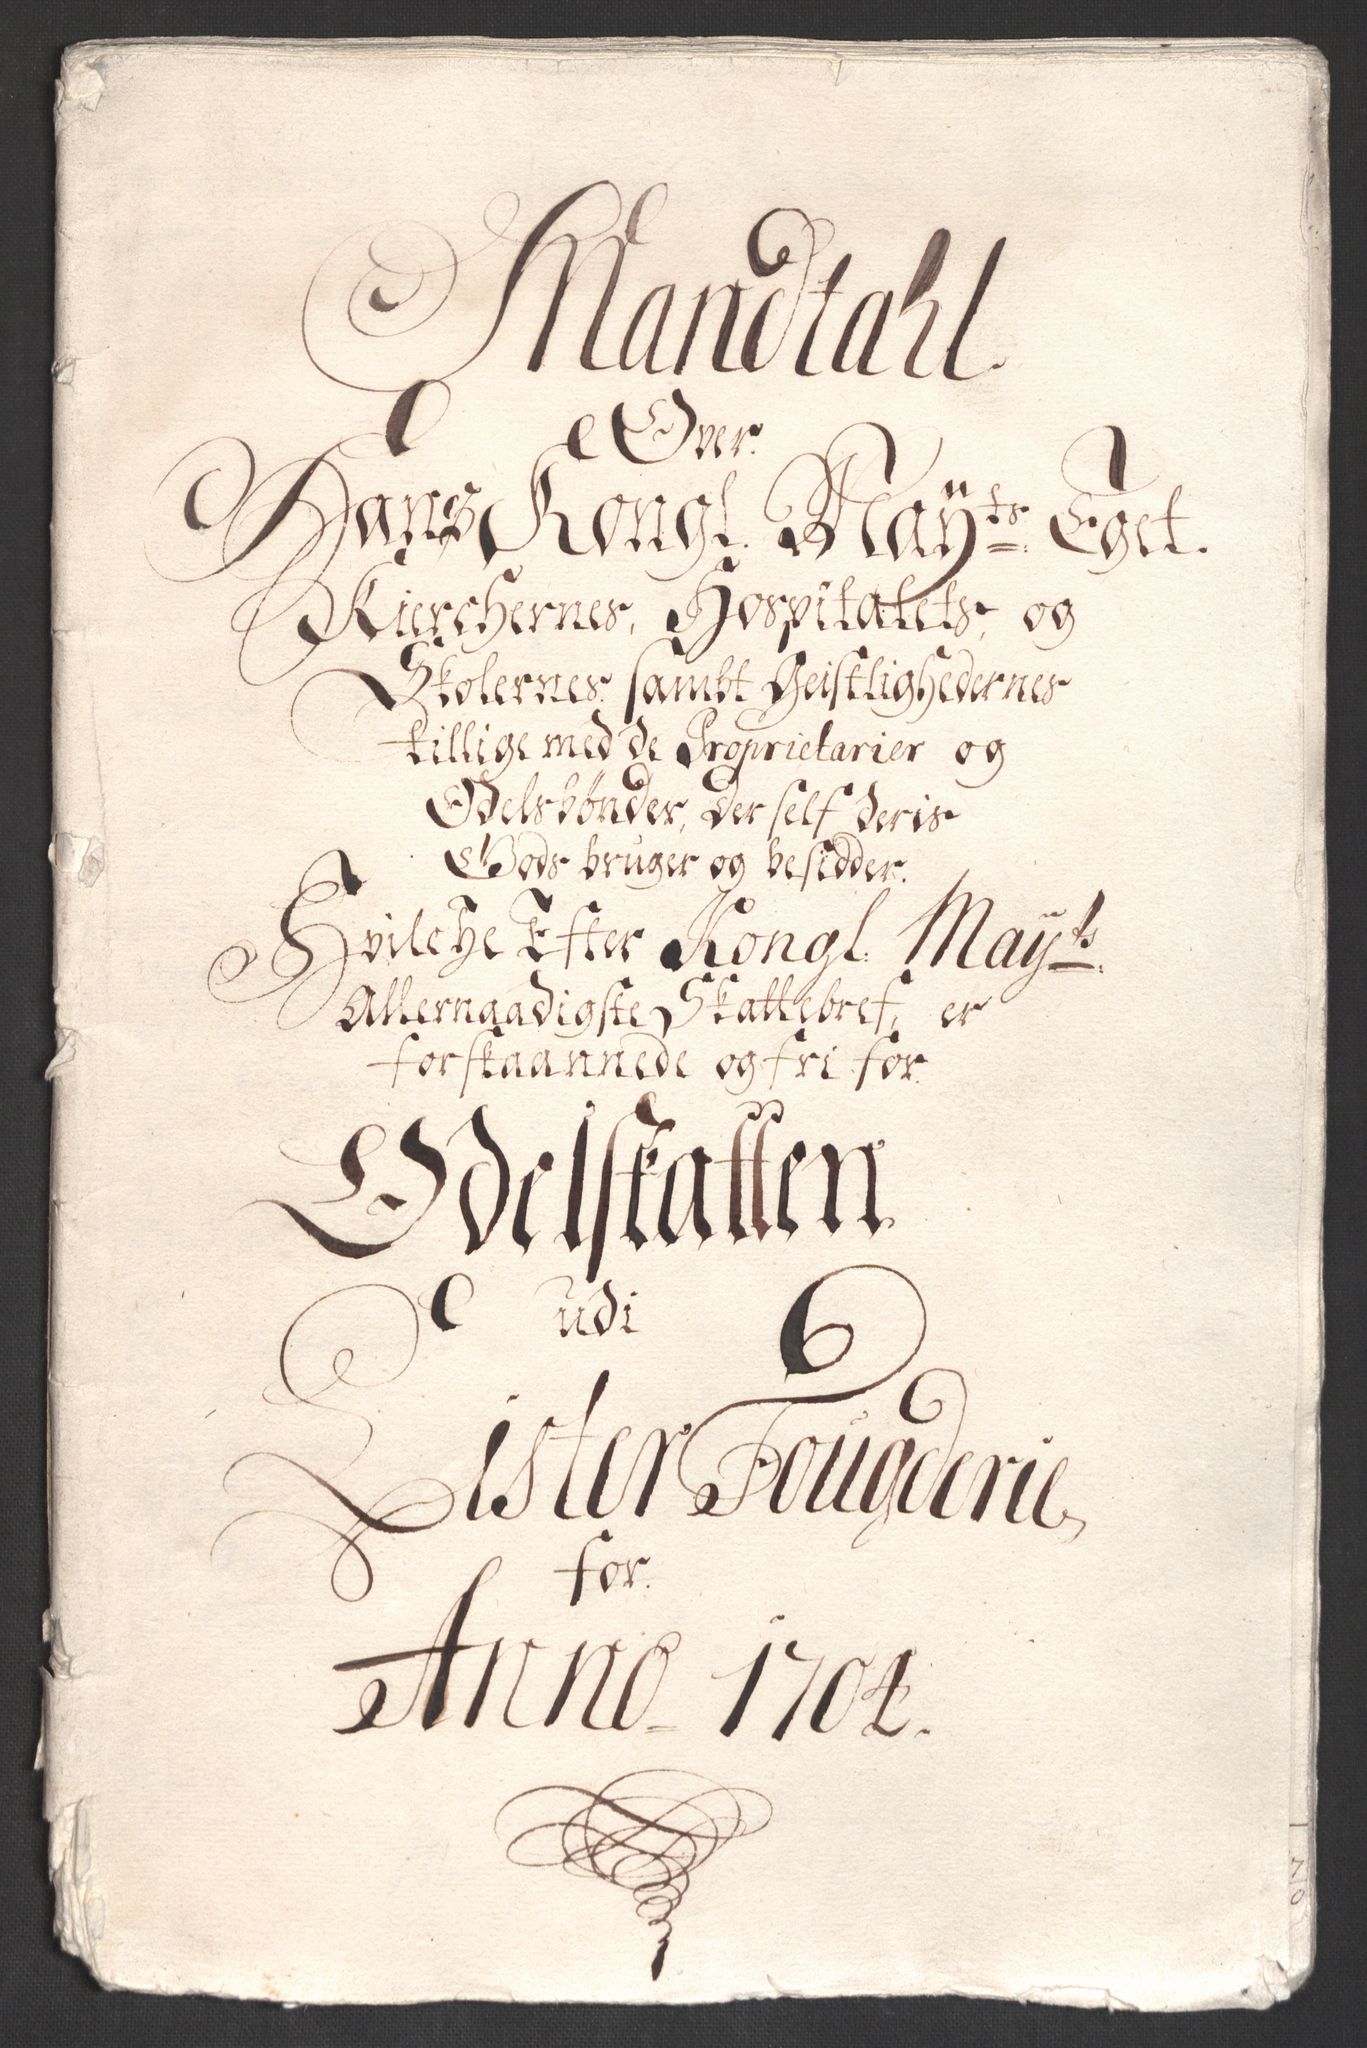 Mandtahl
Over
Hans Kongl. Mayts: Eget.
Kierchernes, Hospitalets, og
Skolernes sambt Geistlighedernes
tillige med de Proprietarier og
Odelsbønder, der self deris
Gods bruger og besidder.
Hvilche Efter Kongl. Mayts:
Allernaadigste Skattebref, er
forskaannede og fri for
Odelskatten
udi
Lister Fougderie,
for
Anno 1704.